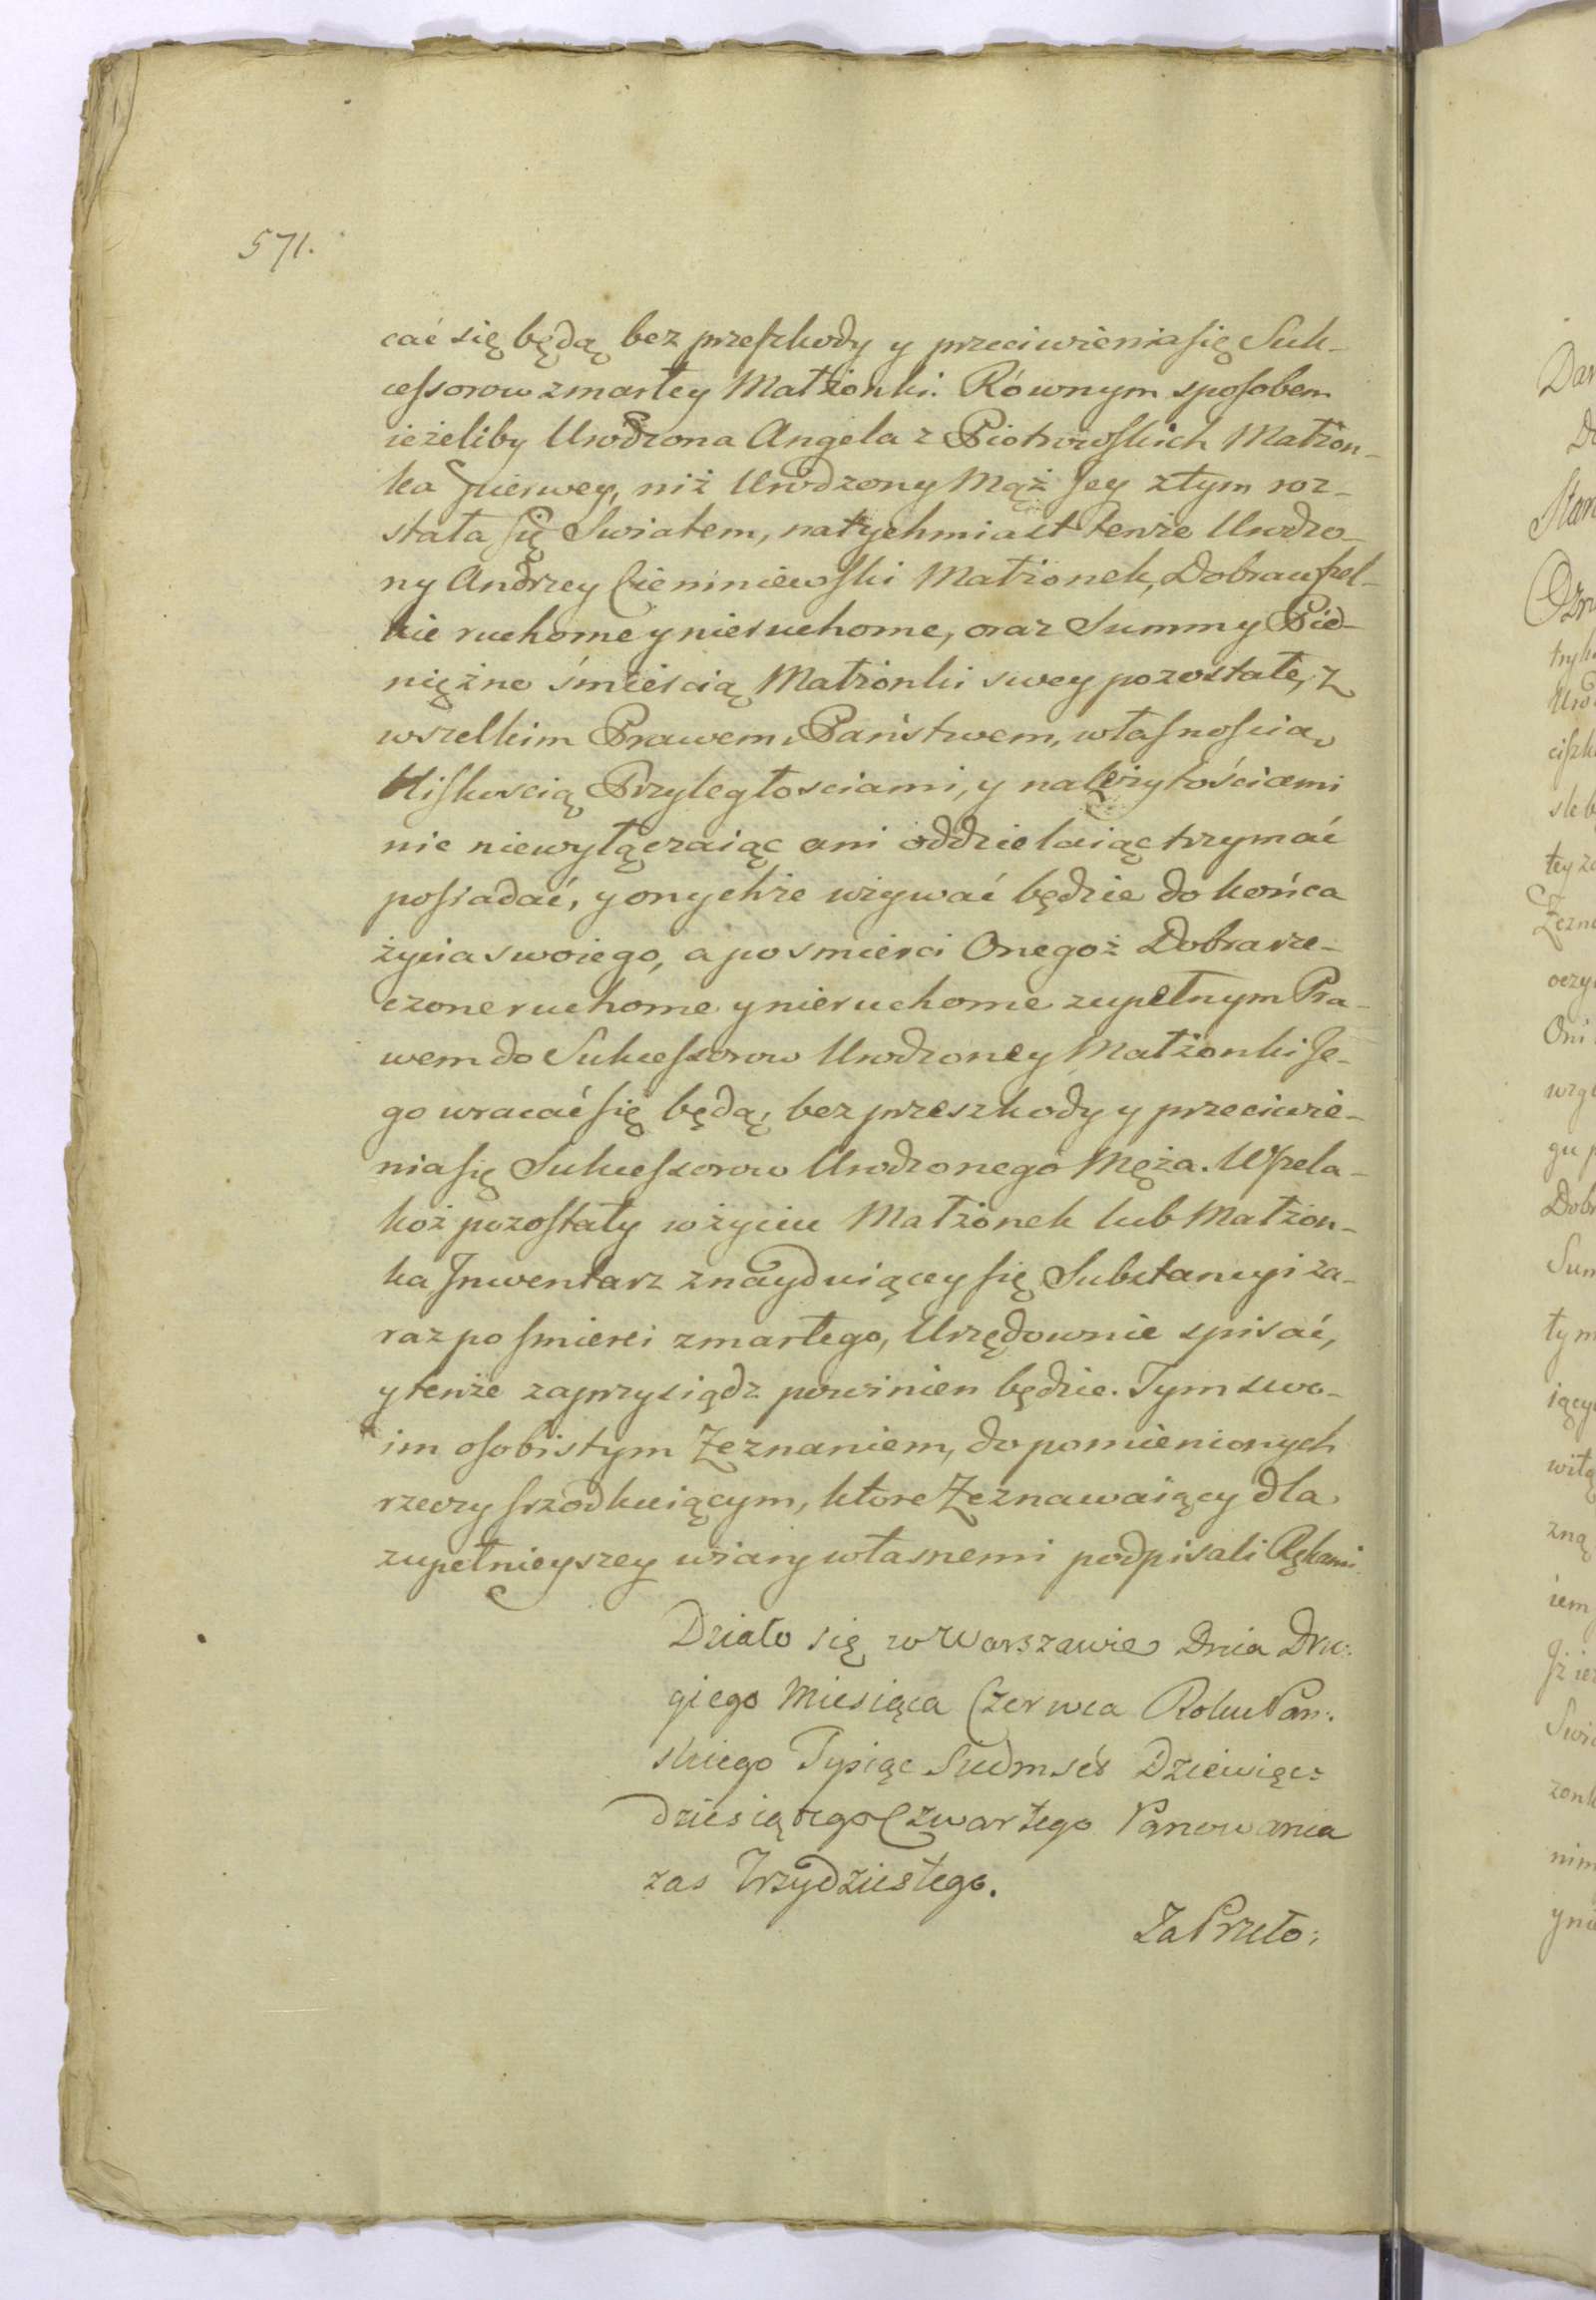 571.
cać się będą bez przeszkody y przeciwienia się Suk-
cessorow zmarłey Małżonki. Równym sposobem
ieżeliby Urodzona Angela z Piotrowskich Małżon-
ka Pierwey, niż Urodzony Mąż Jey z tym roz-
stała się Swiatem, natychmiast tenże Urodzo-
ny Andrzey Cieminiewski Małżonek, Dobra wszel-
kie ruchome y nieruchome, oraz Summy Pie-
niężne śmiercią Małżonki swey pozostałe, z
wszelkim Prawem, Państwem, własnością,
bliskością Przyległosciami, y należytościami
nic niewyłączaiąc ani oddzielaiąc trzymać
possadać, y onychże używać będzie do końca
życia swoiego, a po smierci Onegoż Dobra rze-
czone ruchome y nieruchome zupełnym Pra-
wem do Sukcessorow Urodzoney Małżonki Je-
go wracać się będą, bez przeszkody y przeciwie-
nia się Sukcessorow Urodzonego Męża. Wszela-
koż pozostały w życiu Małżonek lub Małżon-
ka Jnwentarz znayduiącey się Substancyi za-
raz po smierci zmarłego, Urzędownie spisać,
y tenże zaprzysiądz powinien będzie. Tym swo-
im osobistym Zeznaniem, do pomienionych
rzeczy srzodkuiącym, ktore Zeznawaiący dla
zupełnieyszey wiary własnemi podpisali Rękami.
Działo się w Warszawie Dnia Dru:
giego Miesiąca Czerwca Roku Pan:
skiego Tysiąc Siedmset Dziewięć:
dziesiątego Czwartego Panowania
zas Trzydziestego.
Za Przeło: